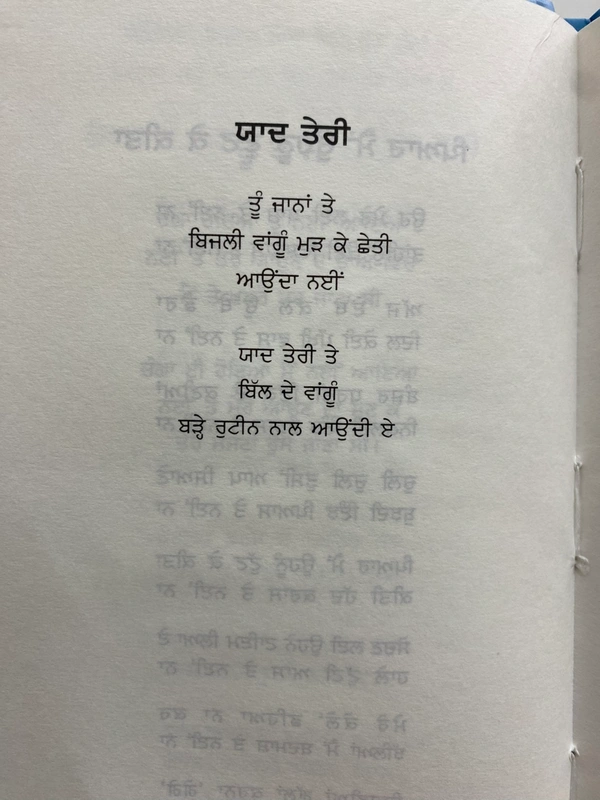 ਯਾਦ ਤੇਰੀ
ਤੂੰ ਜਾਨਾਂ ਤੇ
ਬਿਜਲੀ ਵਾਂਗੂੰ ਮੁੜ ਕੇ ਛੇਤੀ
ਆਉਂਦਾ ਨਈਂ
ਯਾਦ ਤੇਰੀ ਤੇ
ਬਿੱਲ ਦੇ ਵਾਂਗੂੰ
ਬੜ੍ਹੇ ਰੁਟੀਨ ਨਾਲ ਆਉਂਦੀ ਏ